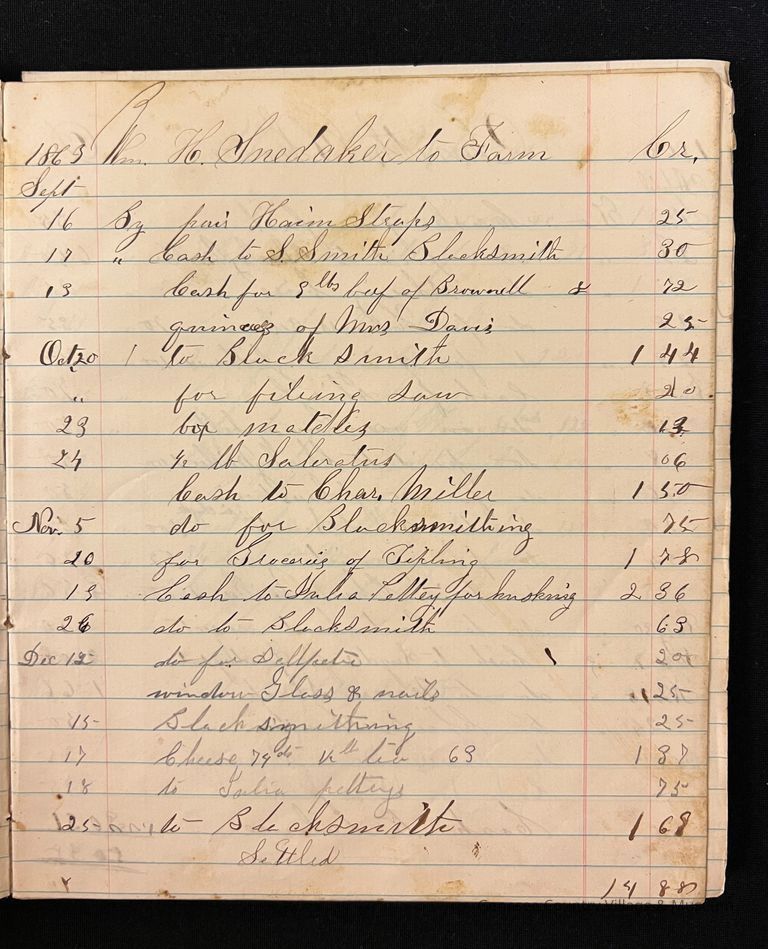 1863 Wm. H. Snedaker to Farm Cr.
Sept
16 By pair Haim Straps 25
17 " Cash to S. Smith Blacksmith 30
13 Cash for 9 lbs beef of Brownell & 72
quinces of Mrs Davis 25
Oct 20 1 to Black Smith 1 44
" for fileing saw 20
23 box matches 13
24 ½ lb Saleratus 06
Cash to Char. Miller 1 50
Nov. 5 do for Blacksmithing 75
20 for Groceries of Tipling 1 78
13 Cash to Julia Pettey for husking 2 36
26 do to Blacksmith 63
Dec 12 do for Sallpetre 20
window Glass & nails 1 25
15 Blacksmithing 25
17 Cheese 74 do ½ lb tea 63 1 37
18 to Julia petteys 75
25 to Blacksmith 1 68
Settled
14 88